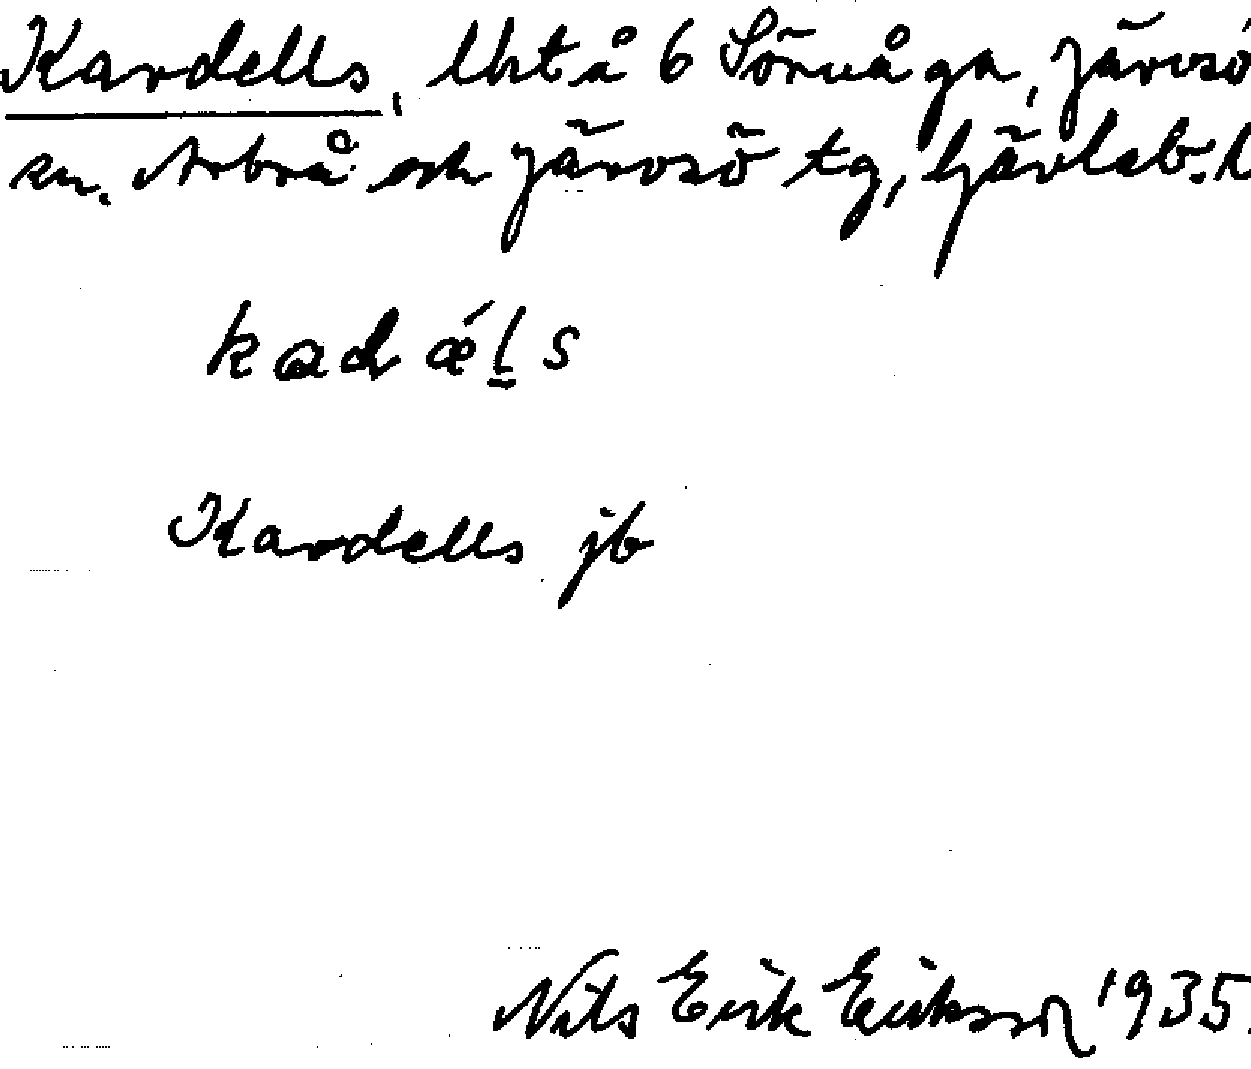 Kardells, Uht å 6 Sörvåga, Järvsö
sn. Arbrå och Järvsö tg, Gävleb. l
kadǽl̠s
Kardells jb
Nils Erik Eriksson 1935.